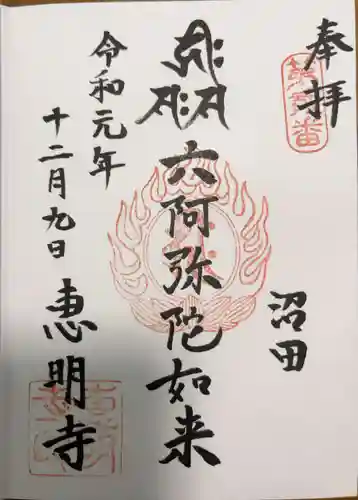 奉拝
沼田
六阿弥陀如来
令和元年
十二月九日
恵明寺